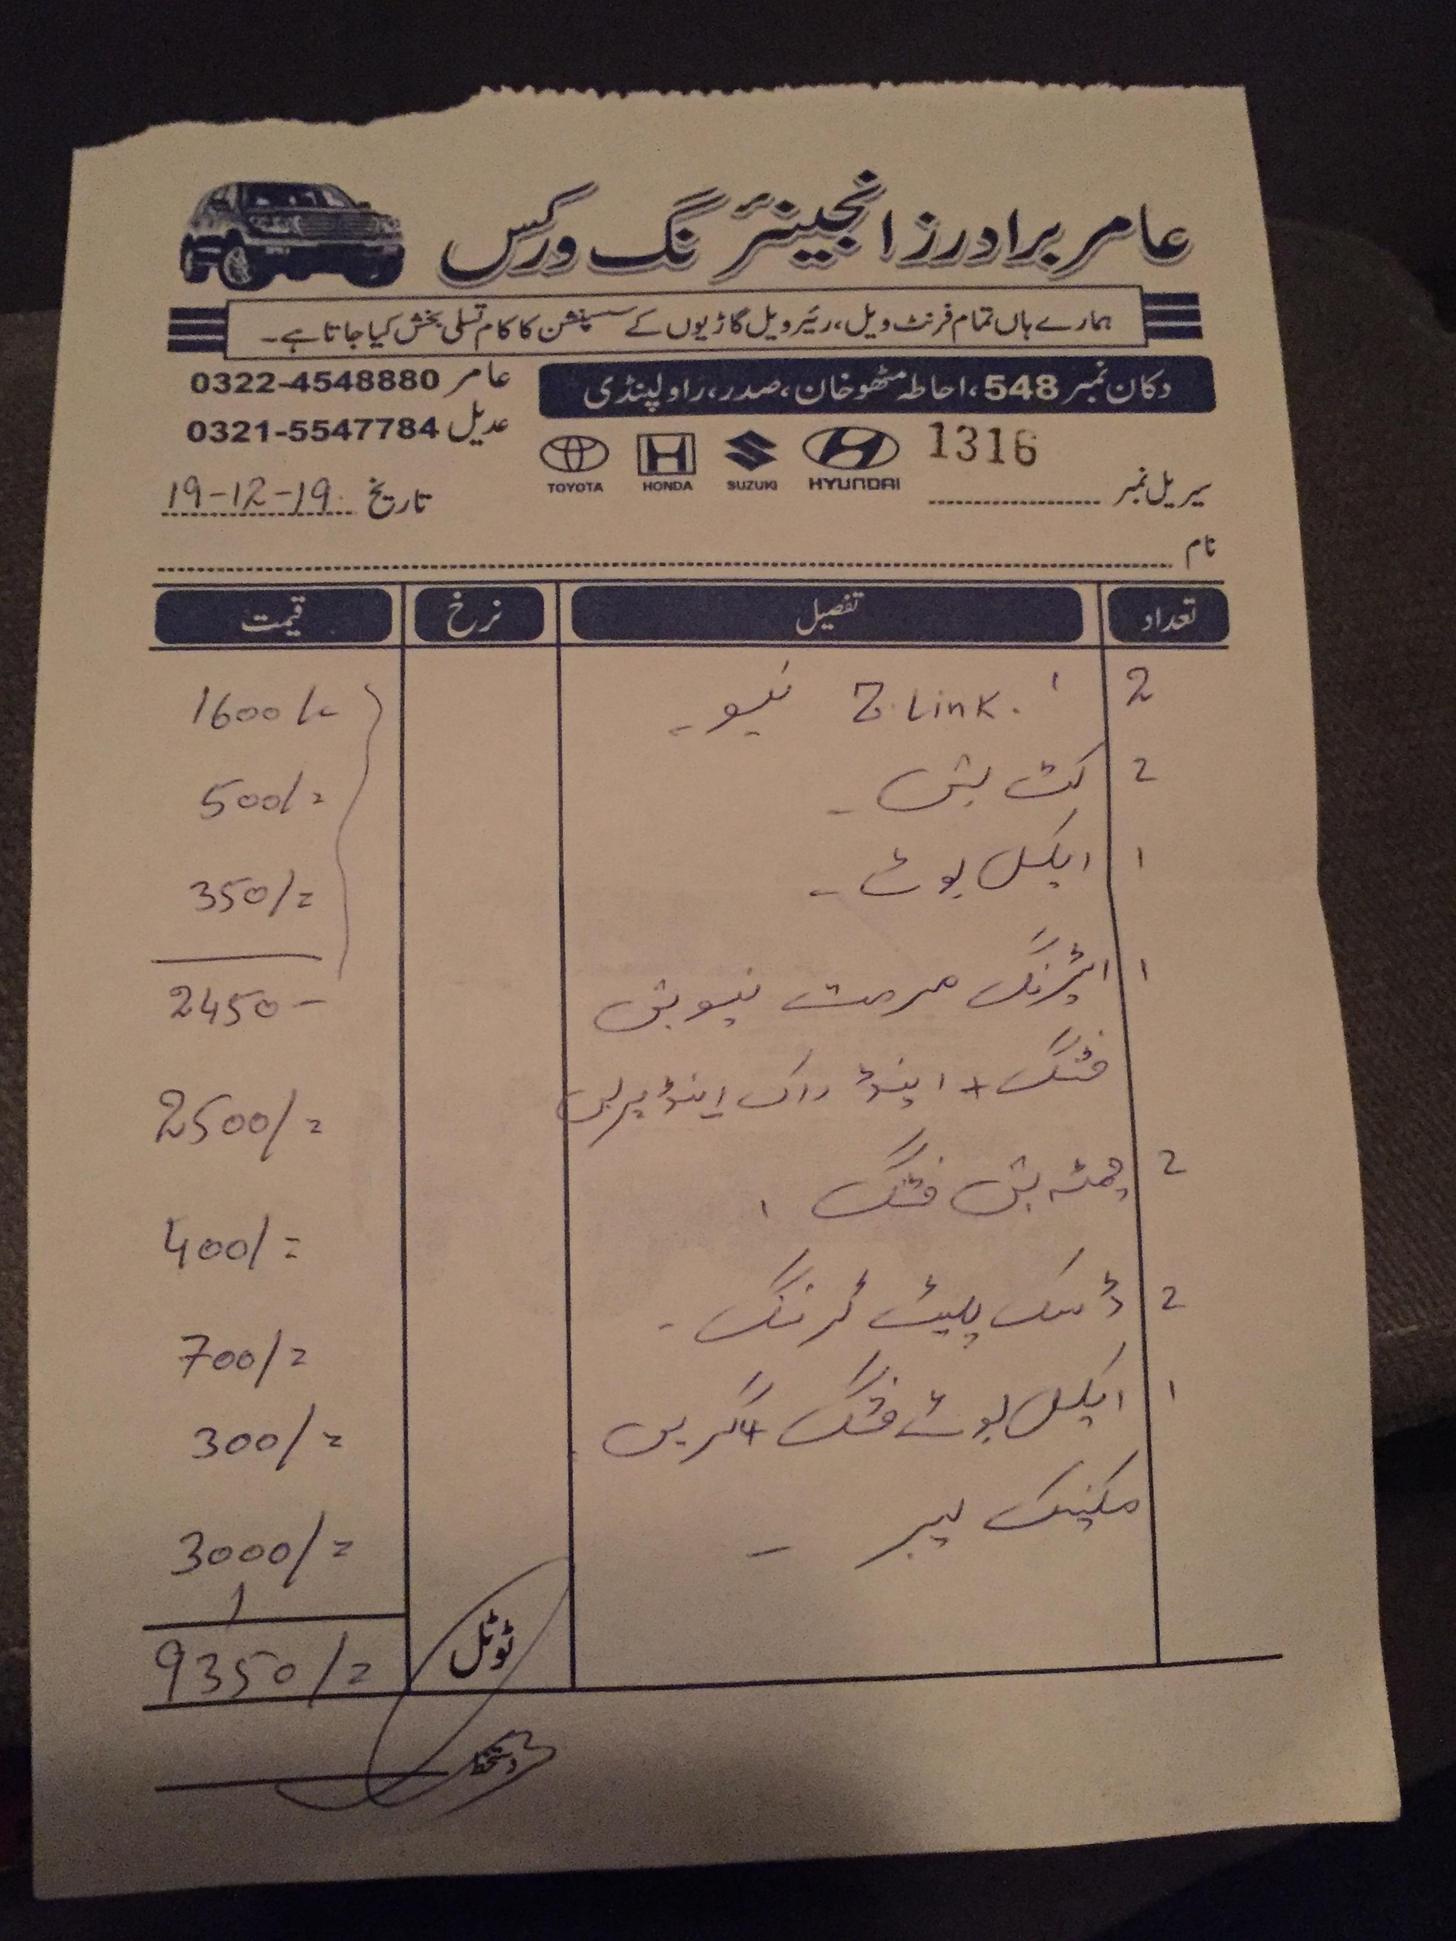 عامر برادرز انجینئرنگ ورکس
ہمارے ہاں تمام فرنٹ ویل، رئیر ویل گاڑیوں کے سسپنشن کا کام تسلی بخش کیا جاتا ہے۔
دکان نمبر 548، احاطہ مٹھو خان، صدر، راولپنڈی
عامر 0322-4548880
عدیل 0321-5547784
TOYOTA HONDA SUZUKI HYUNDAI
سیریل نمبر 1316
تاریخ 19-12-19
نام
تعداد تفصیل نرخ قیمت
2 Z.Link. نیو 1600/=
2 کٹ بش 500/=
1 ایکسل بوٹ 350/=
2450
1 اسٹرنگ مرمت نیو بش
فٹنگ + اینڈ راک اینڈ 2500/=
2 چمٹہ بش فٹنگ 400/=
2 ڈسک پلیٹ گرنڈنگ 700/=
1 ایکسل بوٹ فٹنگ + گریس 300/=
مکینک لیبر 3000/=
ٹوٹل 9350/=
دستخط